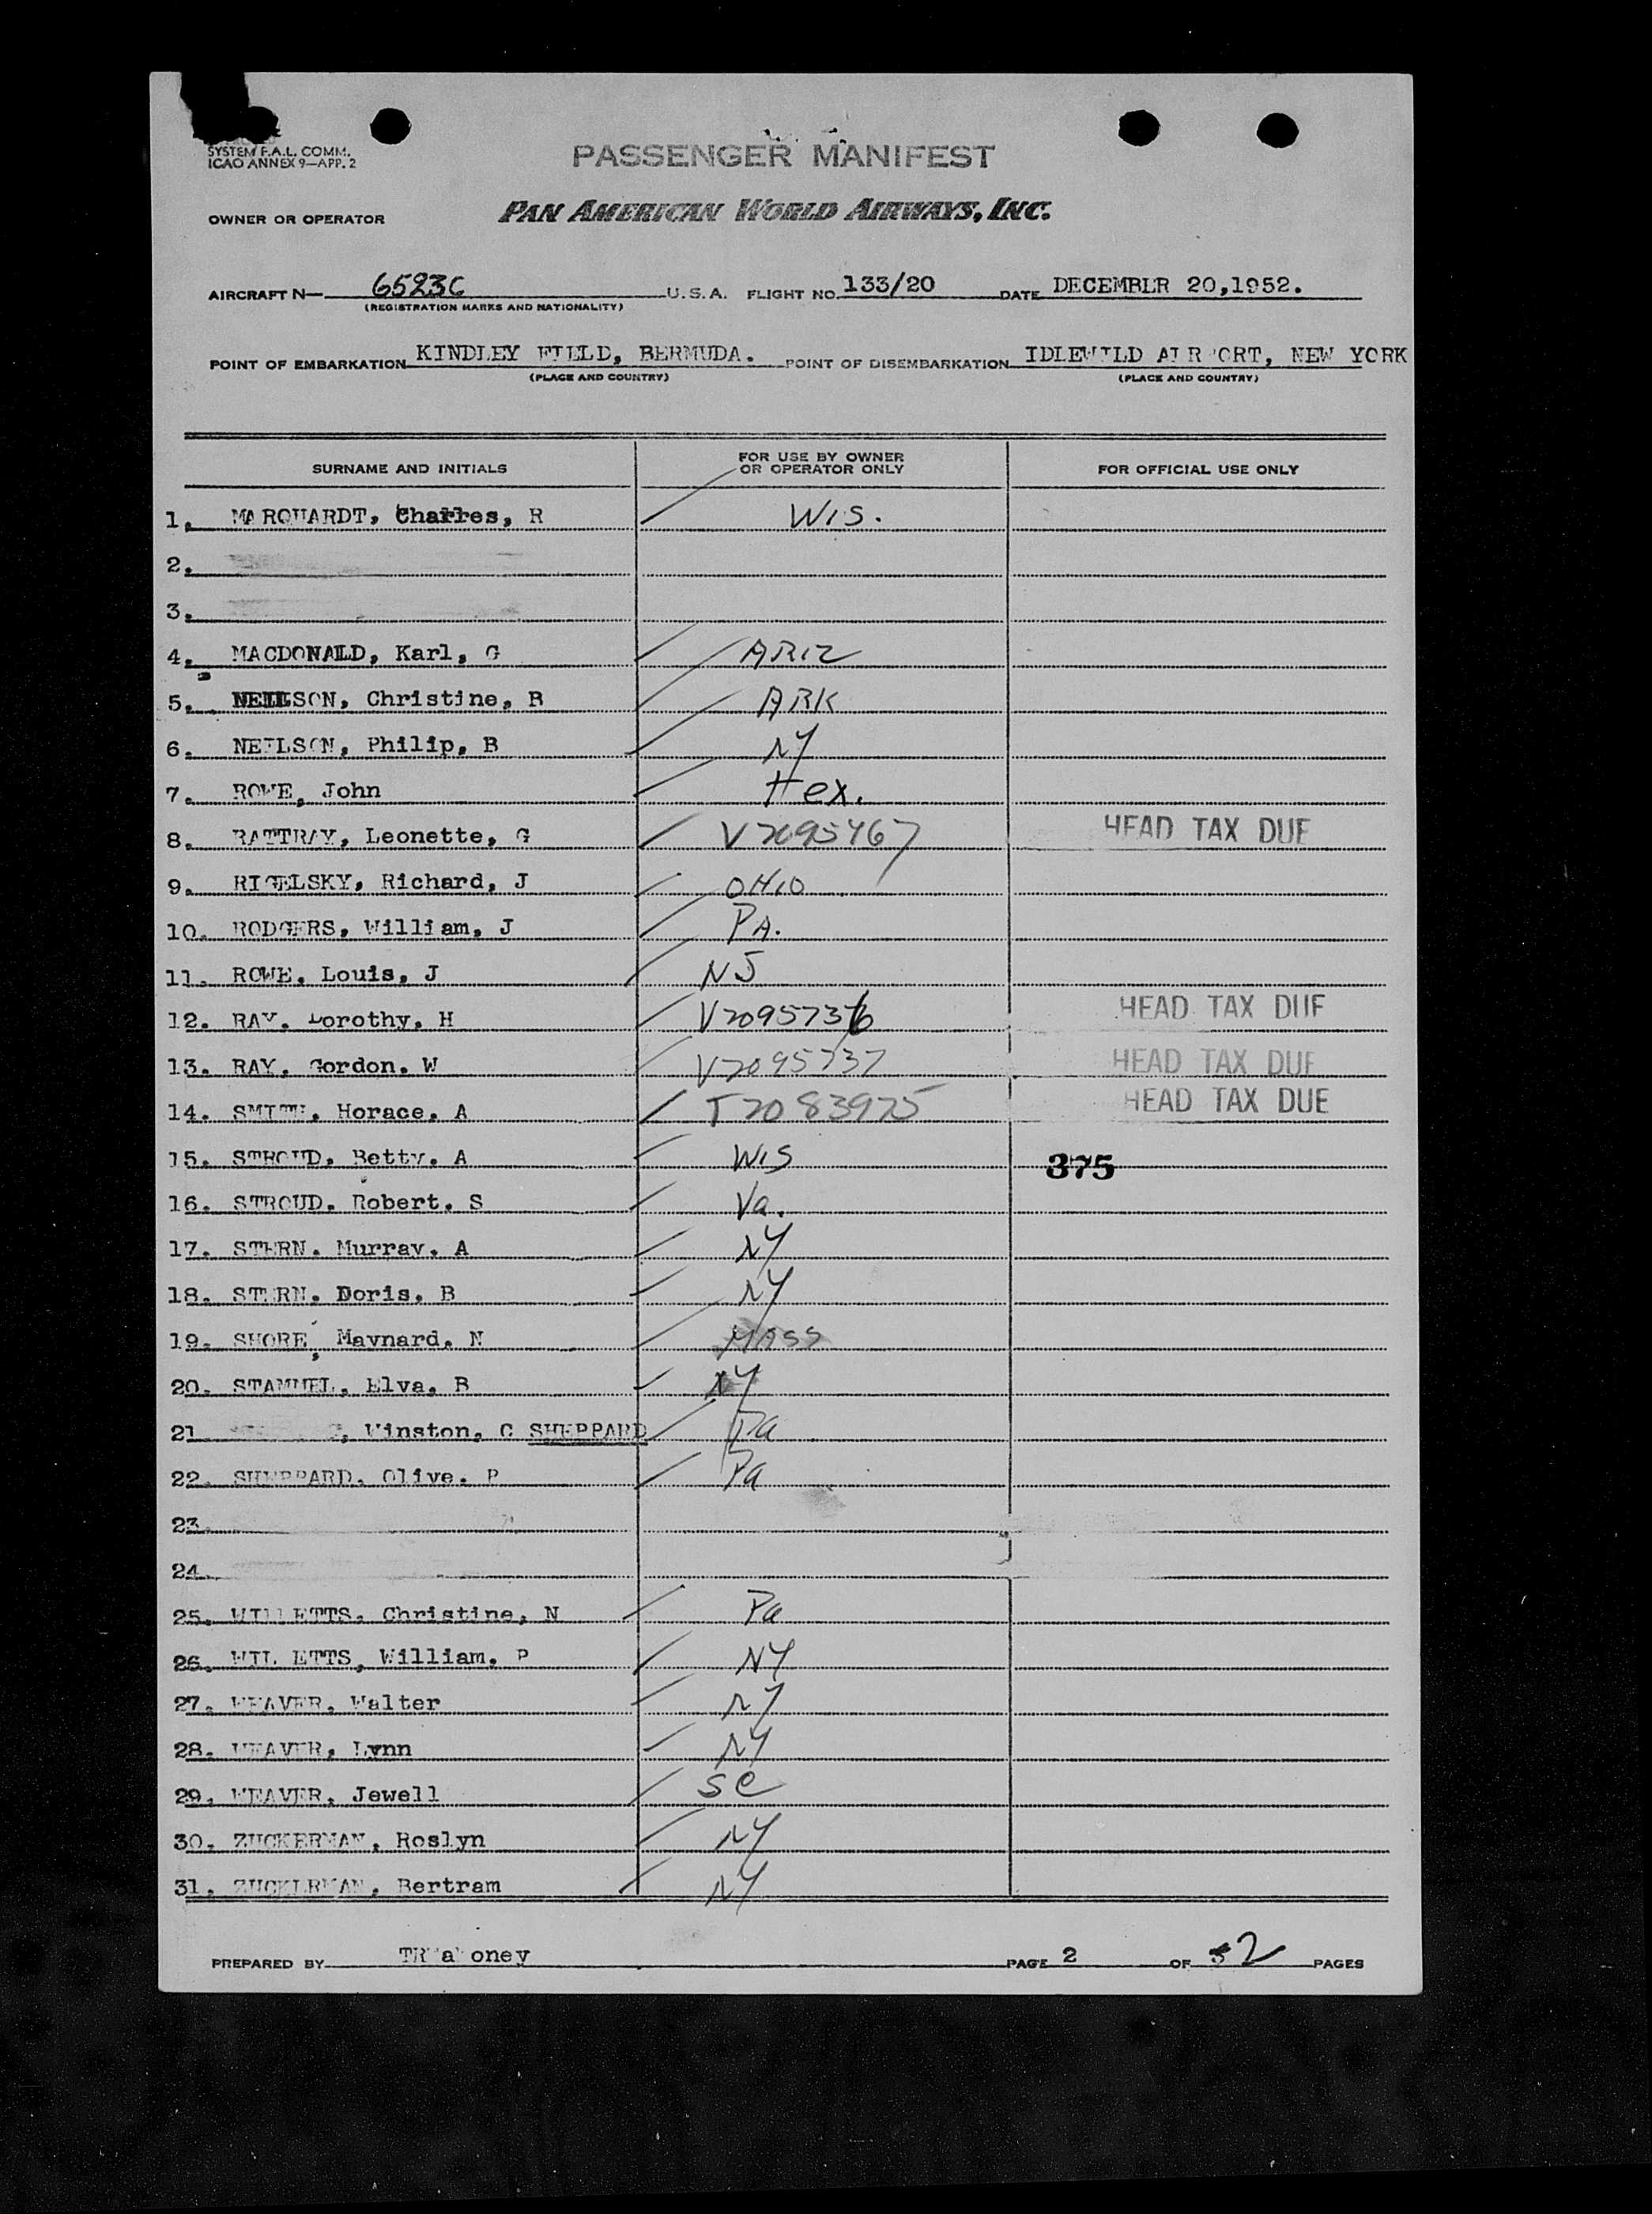 SYSTEM F.A.L. COMM.
ICAO ANNEX 9—APP. 2
PASSENGER MANIFEST
OWNER OR OPERATOR PAN AMERICAN WORLD AIRWAYS, INC.
AIRCRAFT N— 6523C U.S.A. FLIGHT NO. 133/20 DATE DECEMBER 20,1952.
(REGISTRATION MARKS AND NATIONALITY)
POINT OF EMBARKATION KINDLEY FIELD, BERMUDA. POINT OF DISEMBARKATION IDLEWILD AIRPORT, NEW YORK
(PLACE AND COUNTRY) (PLACE AND COUNTRY)
SURNAME AND INITIALS FOR USE BY OWNER OR OPERATOR ONLY FOR OFFICIAL USE ONLY
1. MARQUARDT, Charles, R WIS.
2.
3.
4. MACDONALD, Karl, G ARIZ
5. NEILSON, Christine, B ARK
6. NEILSON, Philip, B NY
7. ROWE, John
8. RATTRAY, Leonette, G V2095467 HEAD TAX DUE
9. RIGELSKY, Richard, J OHIO
10. RODGERS, William, J PA.
11. ROWE. Louis, J NJ
12. RAY. Dorothy, H V2095736 HEAD TAX DUE
13. RAY. Gordon. W V2095737 HEAD TAX DUE
14. SMITH. Horace. A T2083925 HEAD TAX DUE
15. STROUD. Betty. A WIS 375
16. STROUD. Robert. S Va.
17. STERN. Murray. A NY
18. STERN. Doris. B NY
19. SHORE, Maynard. N MASS
20. STAMMEL, Elva. B NY
21 , Winston, C SHEPPARD Pa
22. SHEPPARD. Olive. P Pa
23.
24.
25. WILLETTS. Christine, N Pa
26. WILLETTS, William. P NY
27. WEAVER. Walter NY
28. WEAVER, Lynn NY
29. WEAVER, Jewell SC
30. ZUCKERMAN, Roslyn NY
31. ZUCKERMAN, Bertram NY
PREPARED BY TRMahoney PAGE 2 OF 2 PAGES